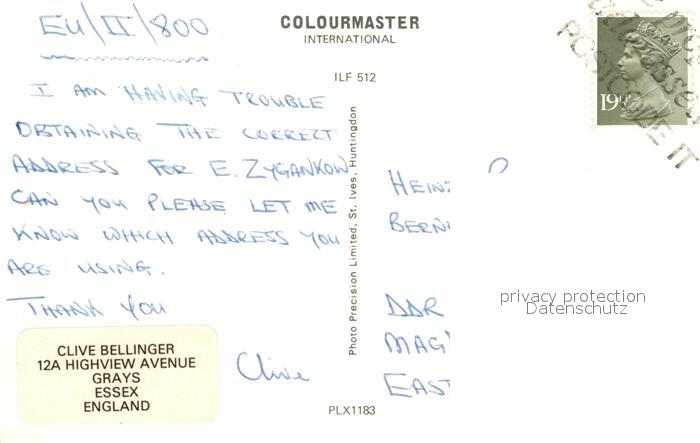 EU/II/800
COLOURMASTER
INTERNATIONAL
ILF 512
I AM HAVING TROUBLE
OBTAINING THE CORRECT
ADDRESS FOR E. ZYGANKOW
CAN YOU PLEASE LET ME
KNOW WHICH ADDRESS YOU
ARE USING.
THANK YOU
Clive
CLIVE BELLINGER
12A HIGHVIEW AVENUE
GRAYS
ESSEX
ENGLAND
Photo Precision Limited, St. Ives, Huntingdon
PLX1183
19½
POSTCODE IT
HEINZ
BERN
DDR
MAG
EAST
privacy protection
Datenschutz